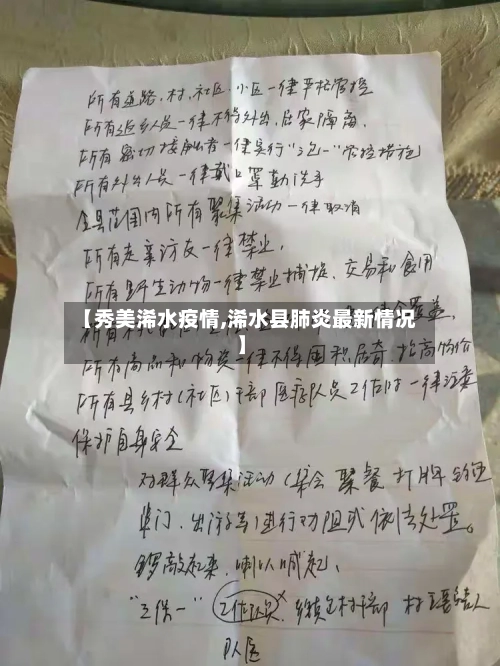 所有道路、村、社区、小区一律严格管控
所有返乡人员一律不得外出,居家隔离,
所有密切接触者一律实行"三包一"管控措施
所有外出人员一律戴口罩勤洗手
全县范围内所有聚集活动一律取消
所有走亲访友一律禁止,
所有野生动物一律禁止捕捉、交易和食用
【秀美浠水疫情,浠水县肺炎最新情况
】
所有商品和物资一律不得囤积居奇、抬高物价
所有县乡村(社区)干部医疗队员工作时一律注意
保护自身安全
对群众聚集活动(集会 聚餐 打牌
串门、出游等)进行劝阻或依法处置。
锣敲起来,喇叭喊起,
"三保一" 工作队员 乡镇包村干部 村主要负责人
队医